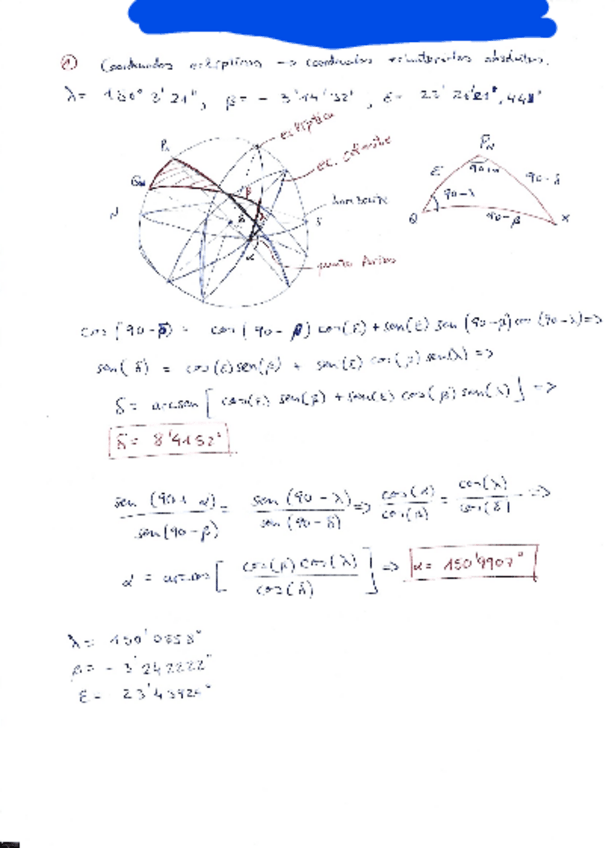 ① Coordenadas eclípticas → coordenadas ecuatoriales absolutas.
λ = 150° 3' 21", β = - 3° 14' 32", ε = 23° 26' 21", 448"
eclíptica
ec. celeste
horizonte
punto Aries
P_N
N
S
P_N
ε
90+α
90-δ
90-λ
90-β
X
cos(90-δ) = cos(90-β) cos(ε) + sen(ε) sen(90-β) cos(90-λ) =>
sen(δ) = cos(ε) sen(β) + sen(ε) cos(β) sen(λ) =>
δ = arcsen [ cos(ε) sen(β) + sen(ε) cos(β) sen(λ) ] =>
δ = 8'4152°
sen(90+α)/sen(90-β) = sen(90-λ)/sen(90-δ) => cos(α)/cos(β) = cos(λ)/cos(δ) =>
α = arccos [ cos(β) cos(λ) / cos(δ) ] => α = 150'9907°
λ = 150'0558°
β = - 3'242222°
ε = 23'43929°